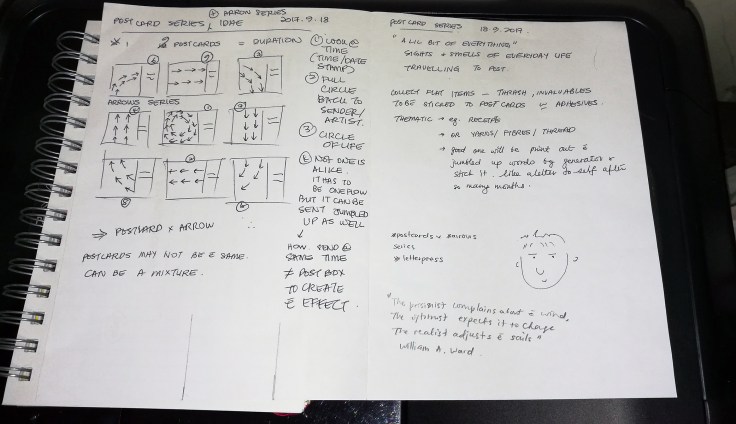 ARROW SERIES
POSTCARD SERIES, IDAE 2017.9.18
* 1 2 POSTCARDS = DURATION
ARROWS SERIES
⇒ POSTCARD × ARROW
POSTCARDS MAY NOT BE E SAME.
CAN BE A MIXTURE.
① LOOK @
TIME
(TIME/DATE
STAMP)
② FULL
CIRCLE
BACK TO
SENDER/
ARTIST.
③ CIRCLE
OF LIFE
NOT ONE IS
ALIKE.
IT HAS TO
BE ONE FLOW
BUT IT CAN BE
SENT JUMBLED
UP AS WELL
↓
HOW SEND @
SAME TIME
≠ POST BOX
TO CREATE
E EFFECT.
POSTCARD SERIES 18.9.2017.
"A LIL BIT OF EVERYTHING"
SIGHTS + SMELLS OF EVERYDAY LIFE
TRAVELLING TO POST.
COLLECT FLAT ITEMS – THRASH, INVALUABLES
TO BE STICKED TO POSTCARDS W ADHESIVES.
THEMATIC → eg. RECEIPTS
→ OR YARNS/ FIBRES/ THREAD
→ good one will be print out &
jumbled up words by generator &
stick it. like a letter to self after
so many months.
*postcards × *arrows
series
* letterpress
"The pessimist complains about E wind,
The optimist expects it to change
The realist adjusts E sails"
William A. Ward.